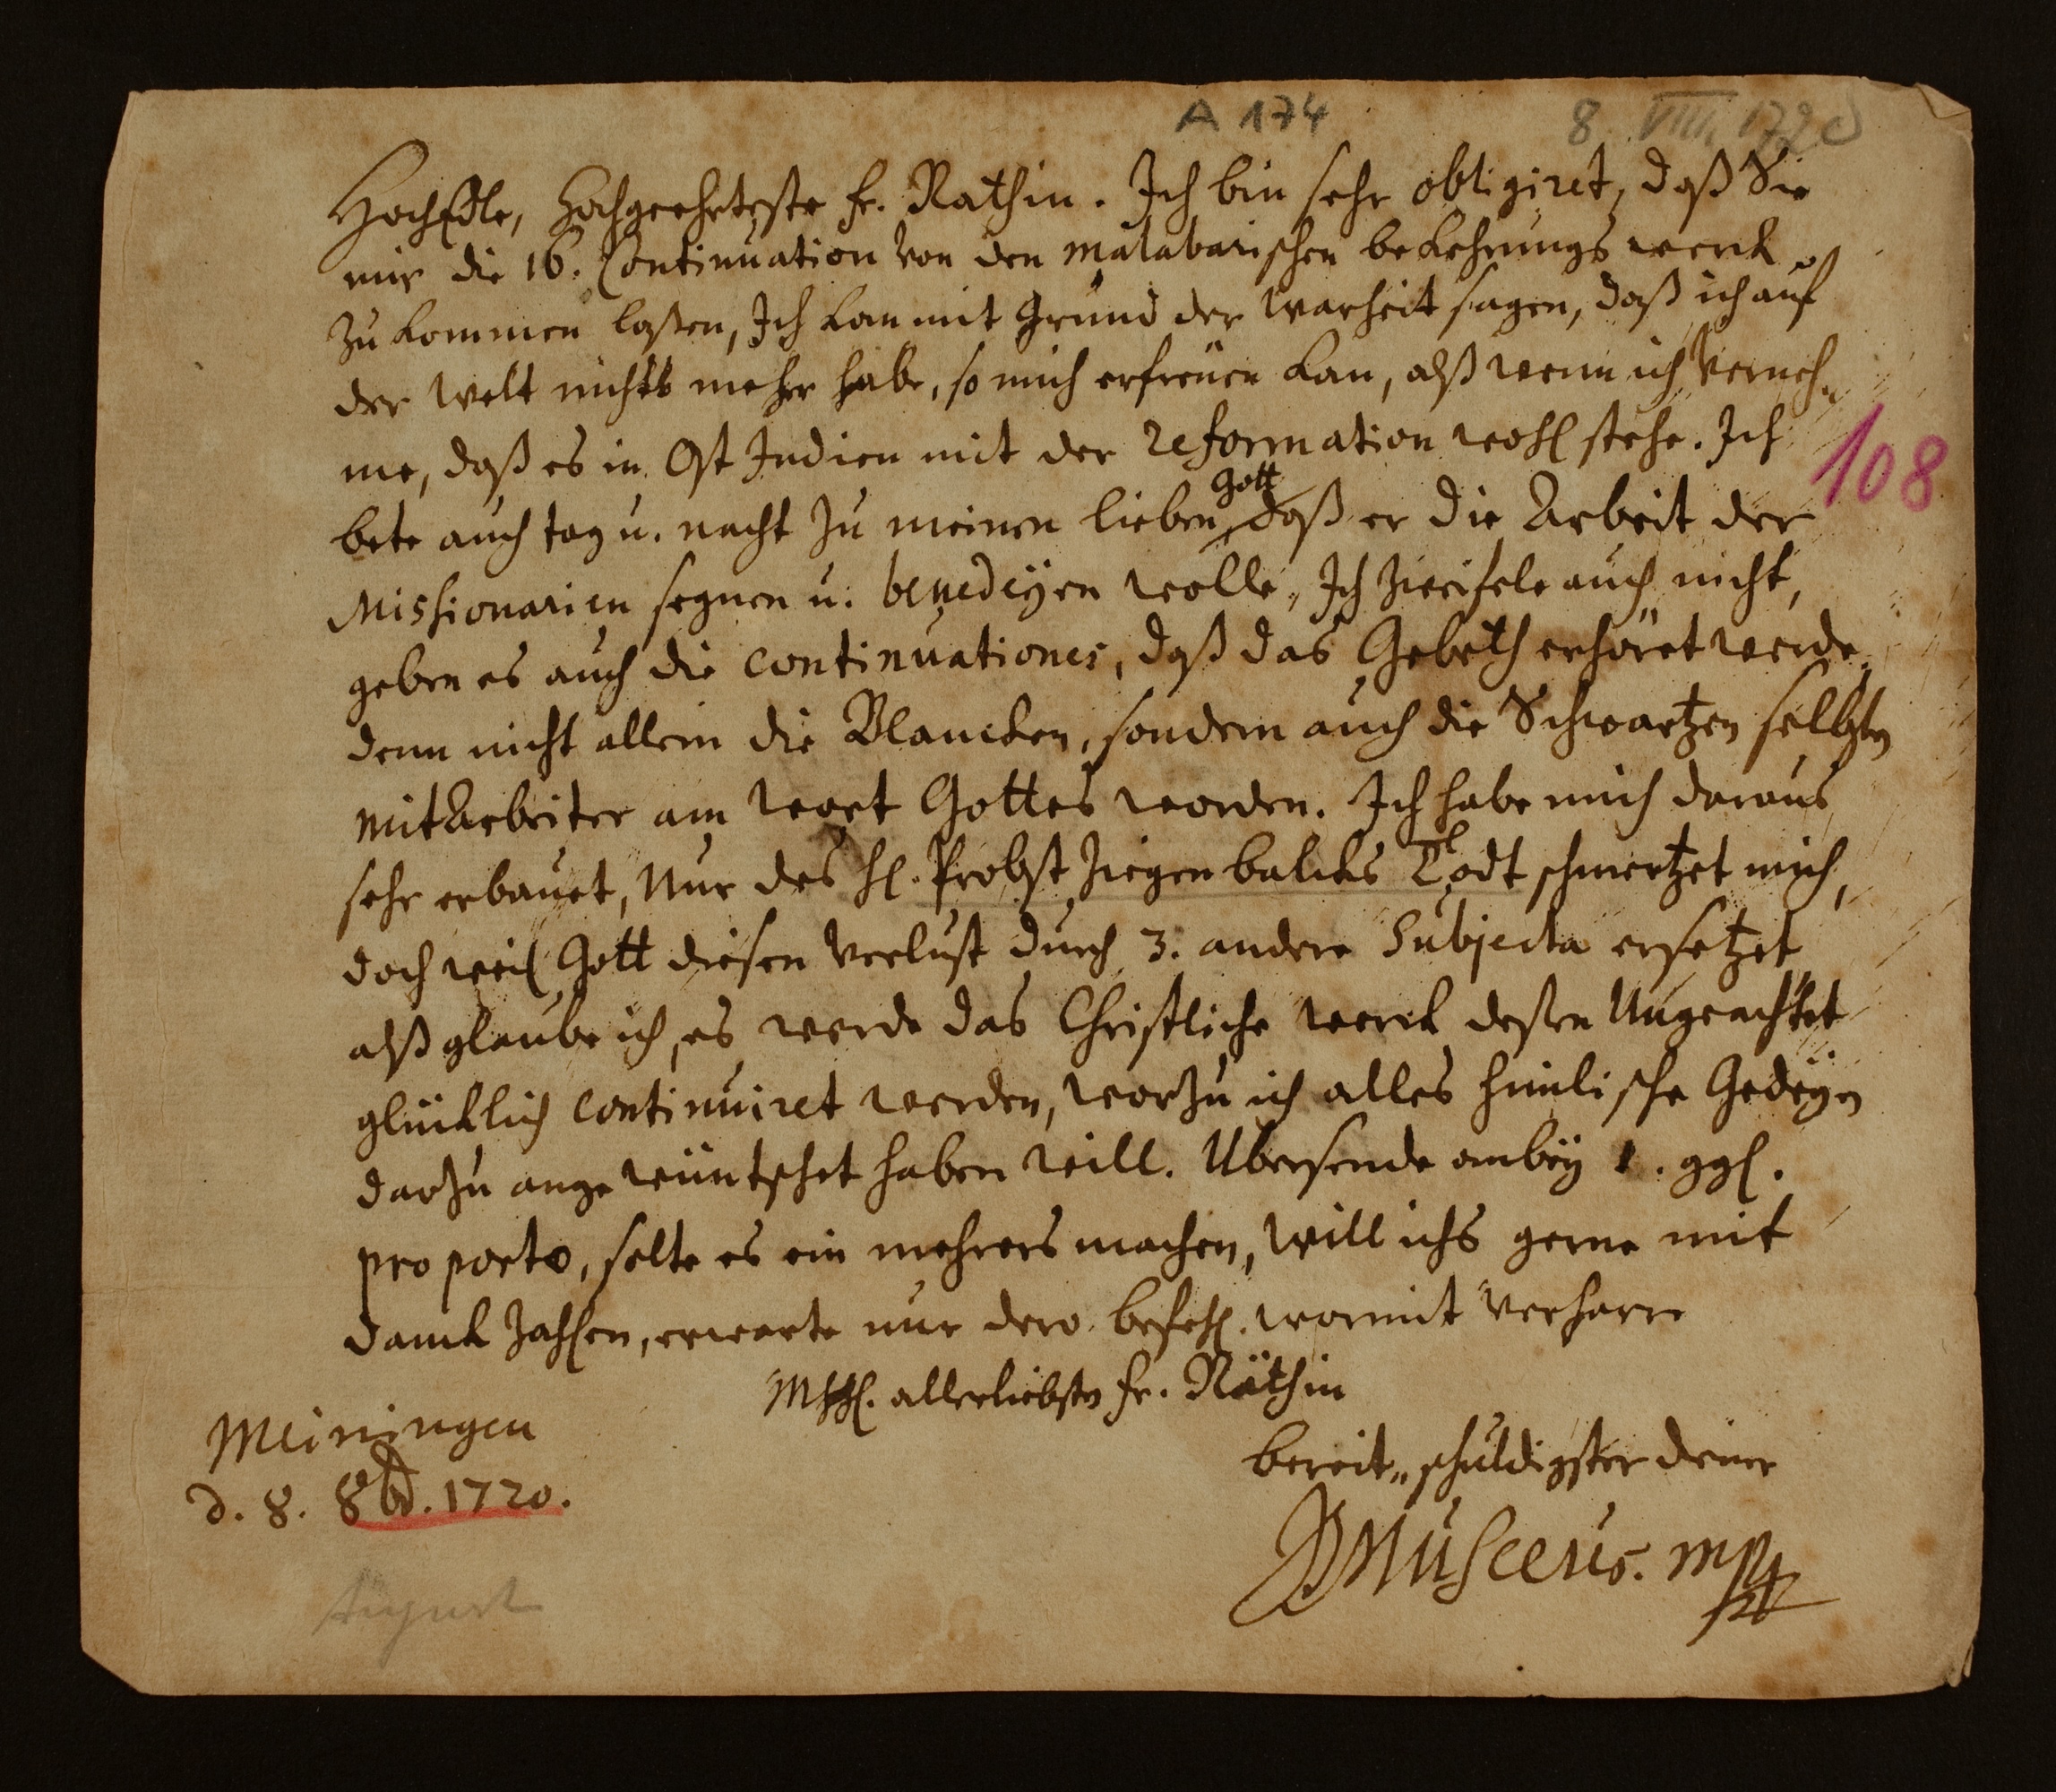 A 174
8. VIII. 1720
HochEdle, Hochgeehrteste fr. Rathin. Ich bin sehr obligiret, daß Sie
mir die 16. Continuation von den Malabarischen bekehrungs werck
zu kommen laßen, Ich kan mit Grund der Warheit sagen, daß ich auf
der Welt nichts mehr habe, so mich erfreüen kan, alß wenn ich verneh-
me, daß es in Ost Indien mit der reformation wohl stehe. Ich
108
bete auch tag u. nacht zu meinen lieben Gott daß er die Arbeit der
Missionarien segnen u. benedeyen wolle, Ich zweifele auch nicht,
geben es auch die continuationes, daß das Gebeth erhöret werde,
denn nicht allein die Blancken, sondern auch die Schwartzen selbsten
mitArbeiter am Wort Gottes worden. Ich habe mich daraus
sehr erbauet, Nur des H. Probst Ziegenbalcks Todt schmertzet mich,
doch weil Gott diesen Verlust durch 3. andere Subjecta ersetzet
alß glaube ich, es werde das Christliche Werck deßen Ungeachtet
glücklich continuiret werden, worzu ich alles himlische Gedeyen
darzu angewüntschet haben will. Übersende anbey 1. ggl.
pro porto, solte es ein mehrers machen, Will ichs gerne mit
danck zahlen, erwarte nur dero befehl. womit verharre
allerliebsten fr. Räthin
Meiningen
d. 8. 8b. 1720.
bereit-schuldigster diener
Musaeus. mp
August